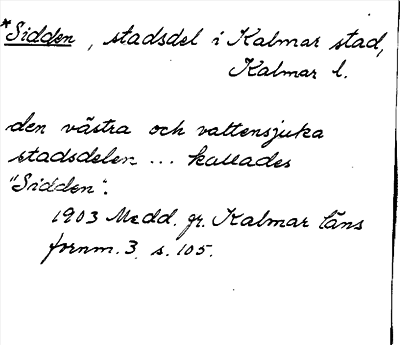 *Sidden, stadsdel i Kalmar stad,
Kalmar l.
den västra och vattensjuka
stadsdelen ... kallades
"Sidden".
1903 Medd. fr. Kalmar läns
fornm. 3. s. 105.